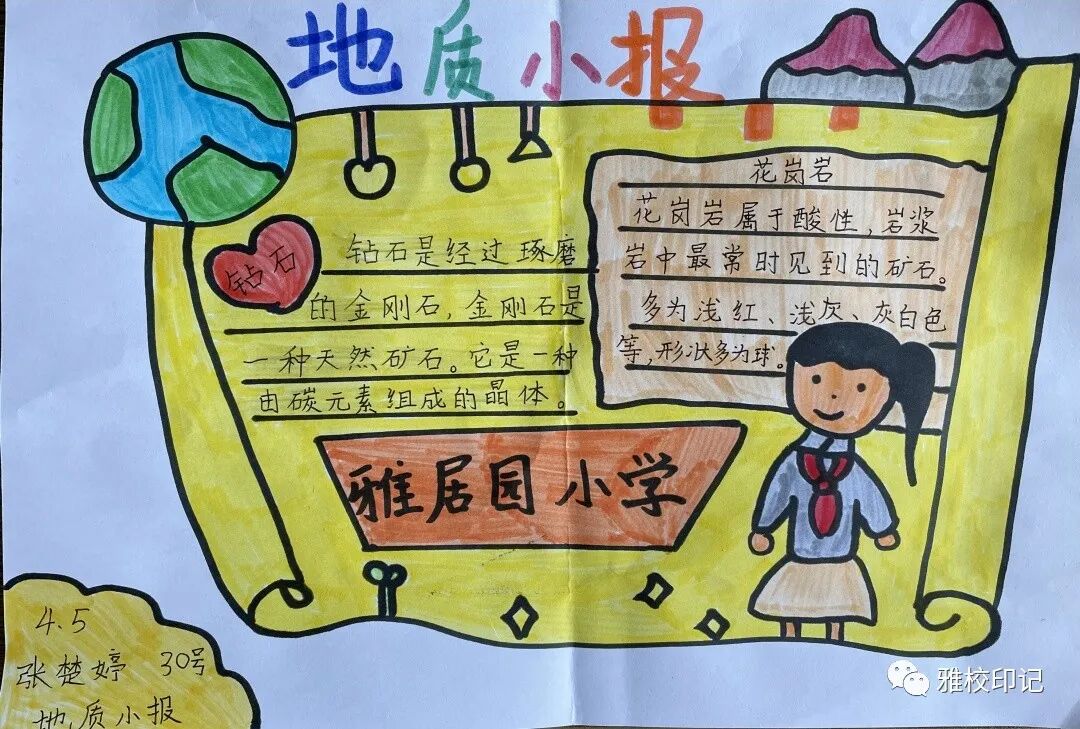 地质小报
钻石
钻石是经过琢磨
的金刚石,金刚石是
一种天然矿石。它是一种
由碳元素组成的晶体。
花岗岩
花岗岩属于酸性,岩浆
岩中最常时见到的矿石。
多为浅红、浅灰、灰白色
等,形状多为球。
雅居园小学
4.5
张楚婷 30号
地质小报
雅校印记